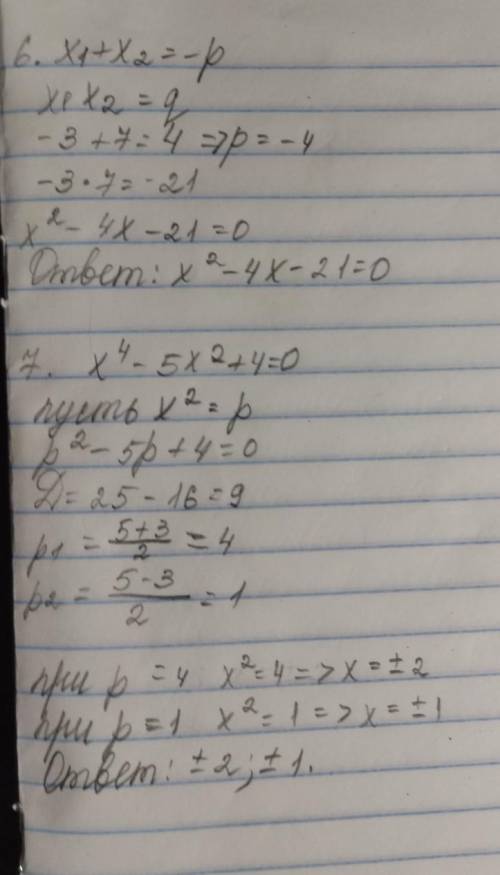 6. x₁+x₂=-p
x₁x₂=q
-3+7=4 =>p=-4
-3·7=-21
x²-4x-21=0
Ответ: x²-4x-21=0
7. x⁴-5x²+4=0
пусть x²=p
p²-5p+4=0
D=25-16=9
p₁=\frac{5+3}{2}=4
p₂=\frac{5-3}{2}=1
при p=4 x²=4=>x=±2
при p=1 x²=1=>x=±1
Ответ: ±2;±1.